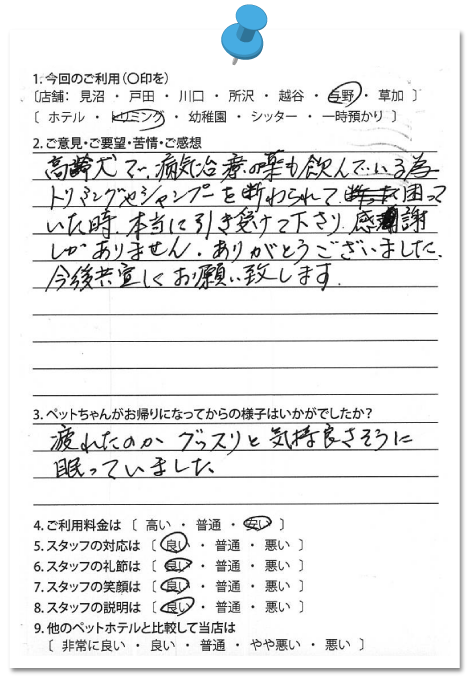 1.今回のご利用(〇印を)
〔店舗: 見沼 ・ 戸田 ・ 川口 ・ 所沢 ・ 越谷 ・ 与野 ・ 草加 〕
〔 ホテル ・ トリミング ・ 幼稚園 ・ シッター ・ 一時預かり 〕
2.ご意見・ご要望・苦情・ご感想
高齢犬で、病気治療の薬も飲んでいる為
トリミングやシャンプーを断わられて、困って
いた時、本当に引き受けて下さり、感謝
しかありません。ありがとうございました、
今後共宜しくお願い致します。
3.ペットちゃんがお帰りになってからの様子はいかがでしたか?
疲れたのか グッスリと気持良さそうに
眠っていました。
4.ご利用料金は 〔 高い ・ 普通 ・ 安い 〕
5.スタッフの対応は 〔 良い ・ 普通 ・ 悪い 〕
6.スタッフの礼節は 〔 良い ・ 普通 ・ 悪い 〕
7.スタッフの笑顔は 〔 良い ・ 普通 ・ 悪い 〕
8.スタッフの説明は 〔 良い ・ 普通 ・ 悪い 〕
9.他のペットホテルと比較して当店は
〔 非常に良い ・ 良い ・ 普通 ・ やや悪い ・ 悪い 〕